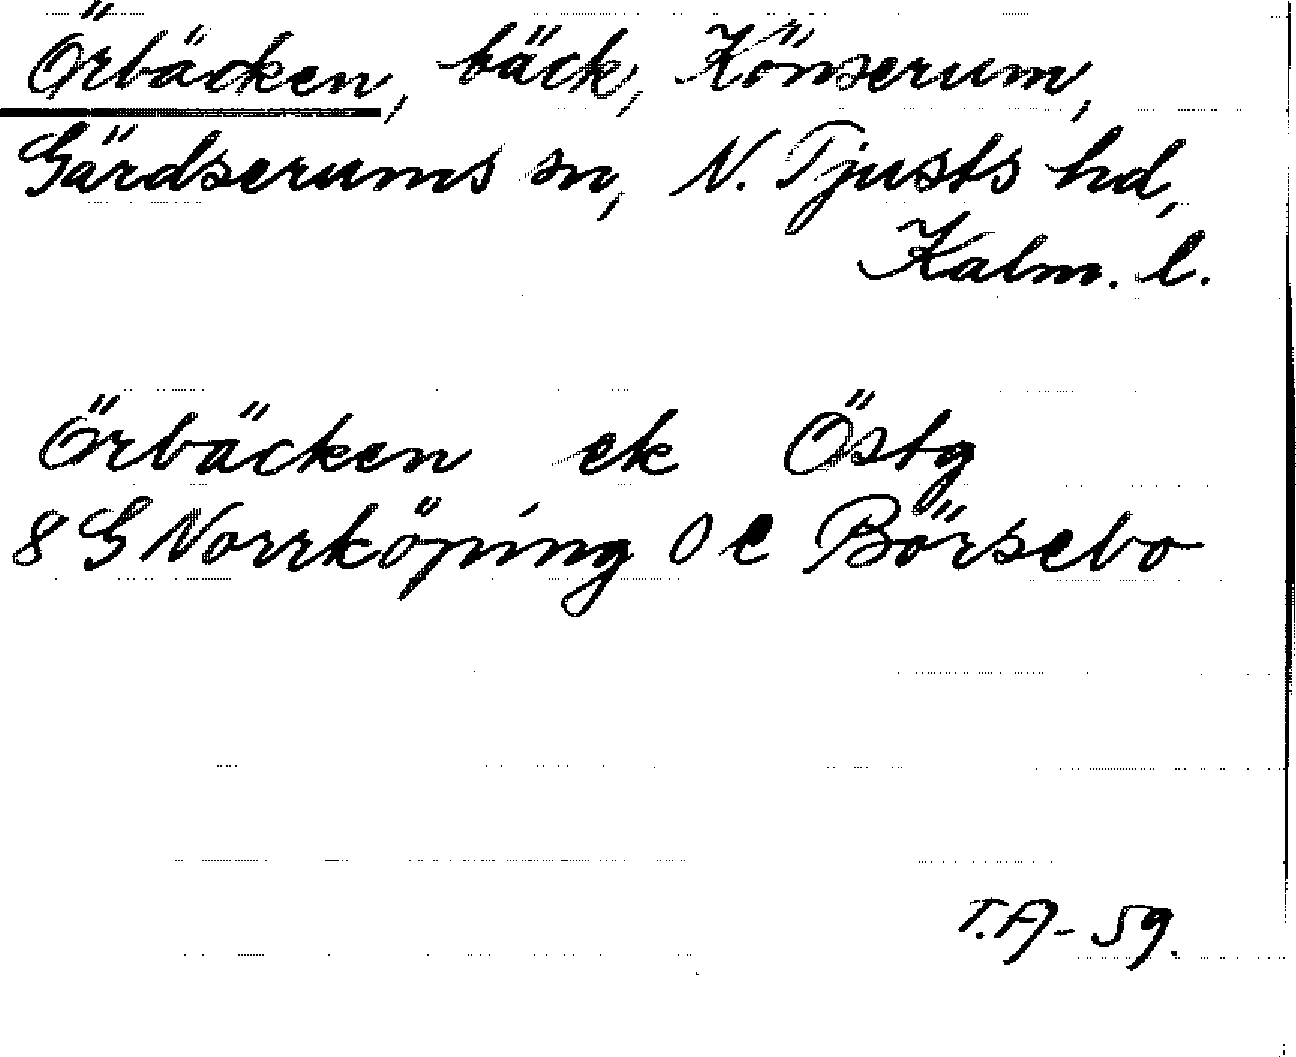 Örbäcken, bäck, Könserum,
Gärdserums sn, N. Tjusts hd,
Kalm. l.
Örbäcken ek Östg
8 G Norrköping 0 e Börsebo
T.A- 59.